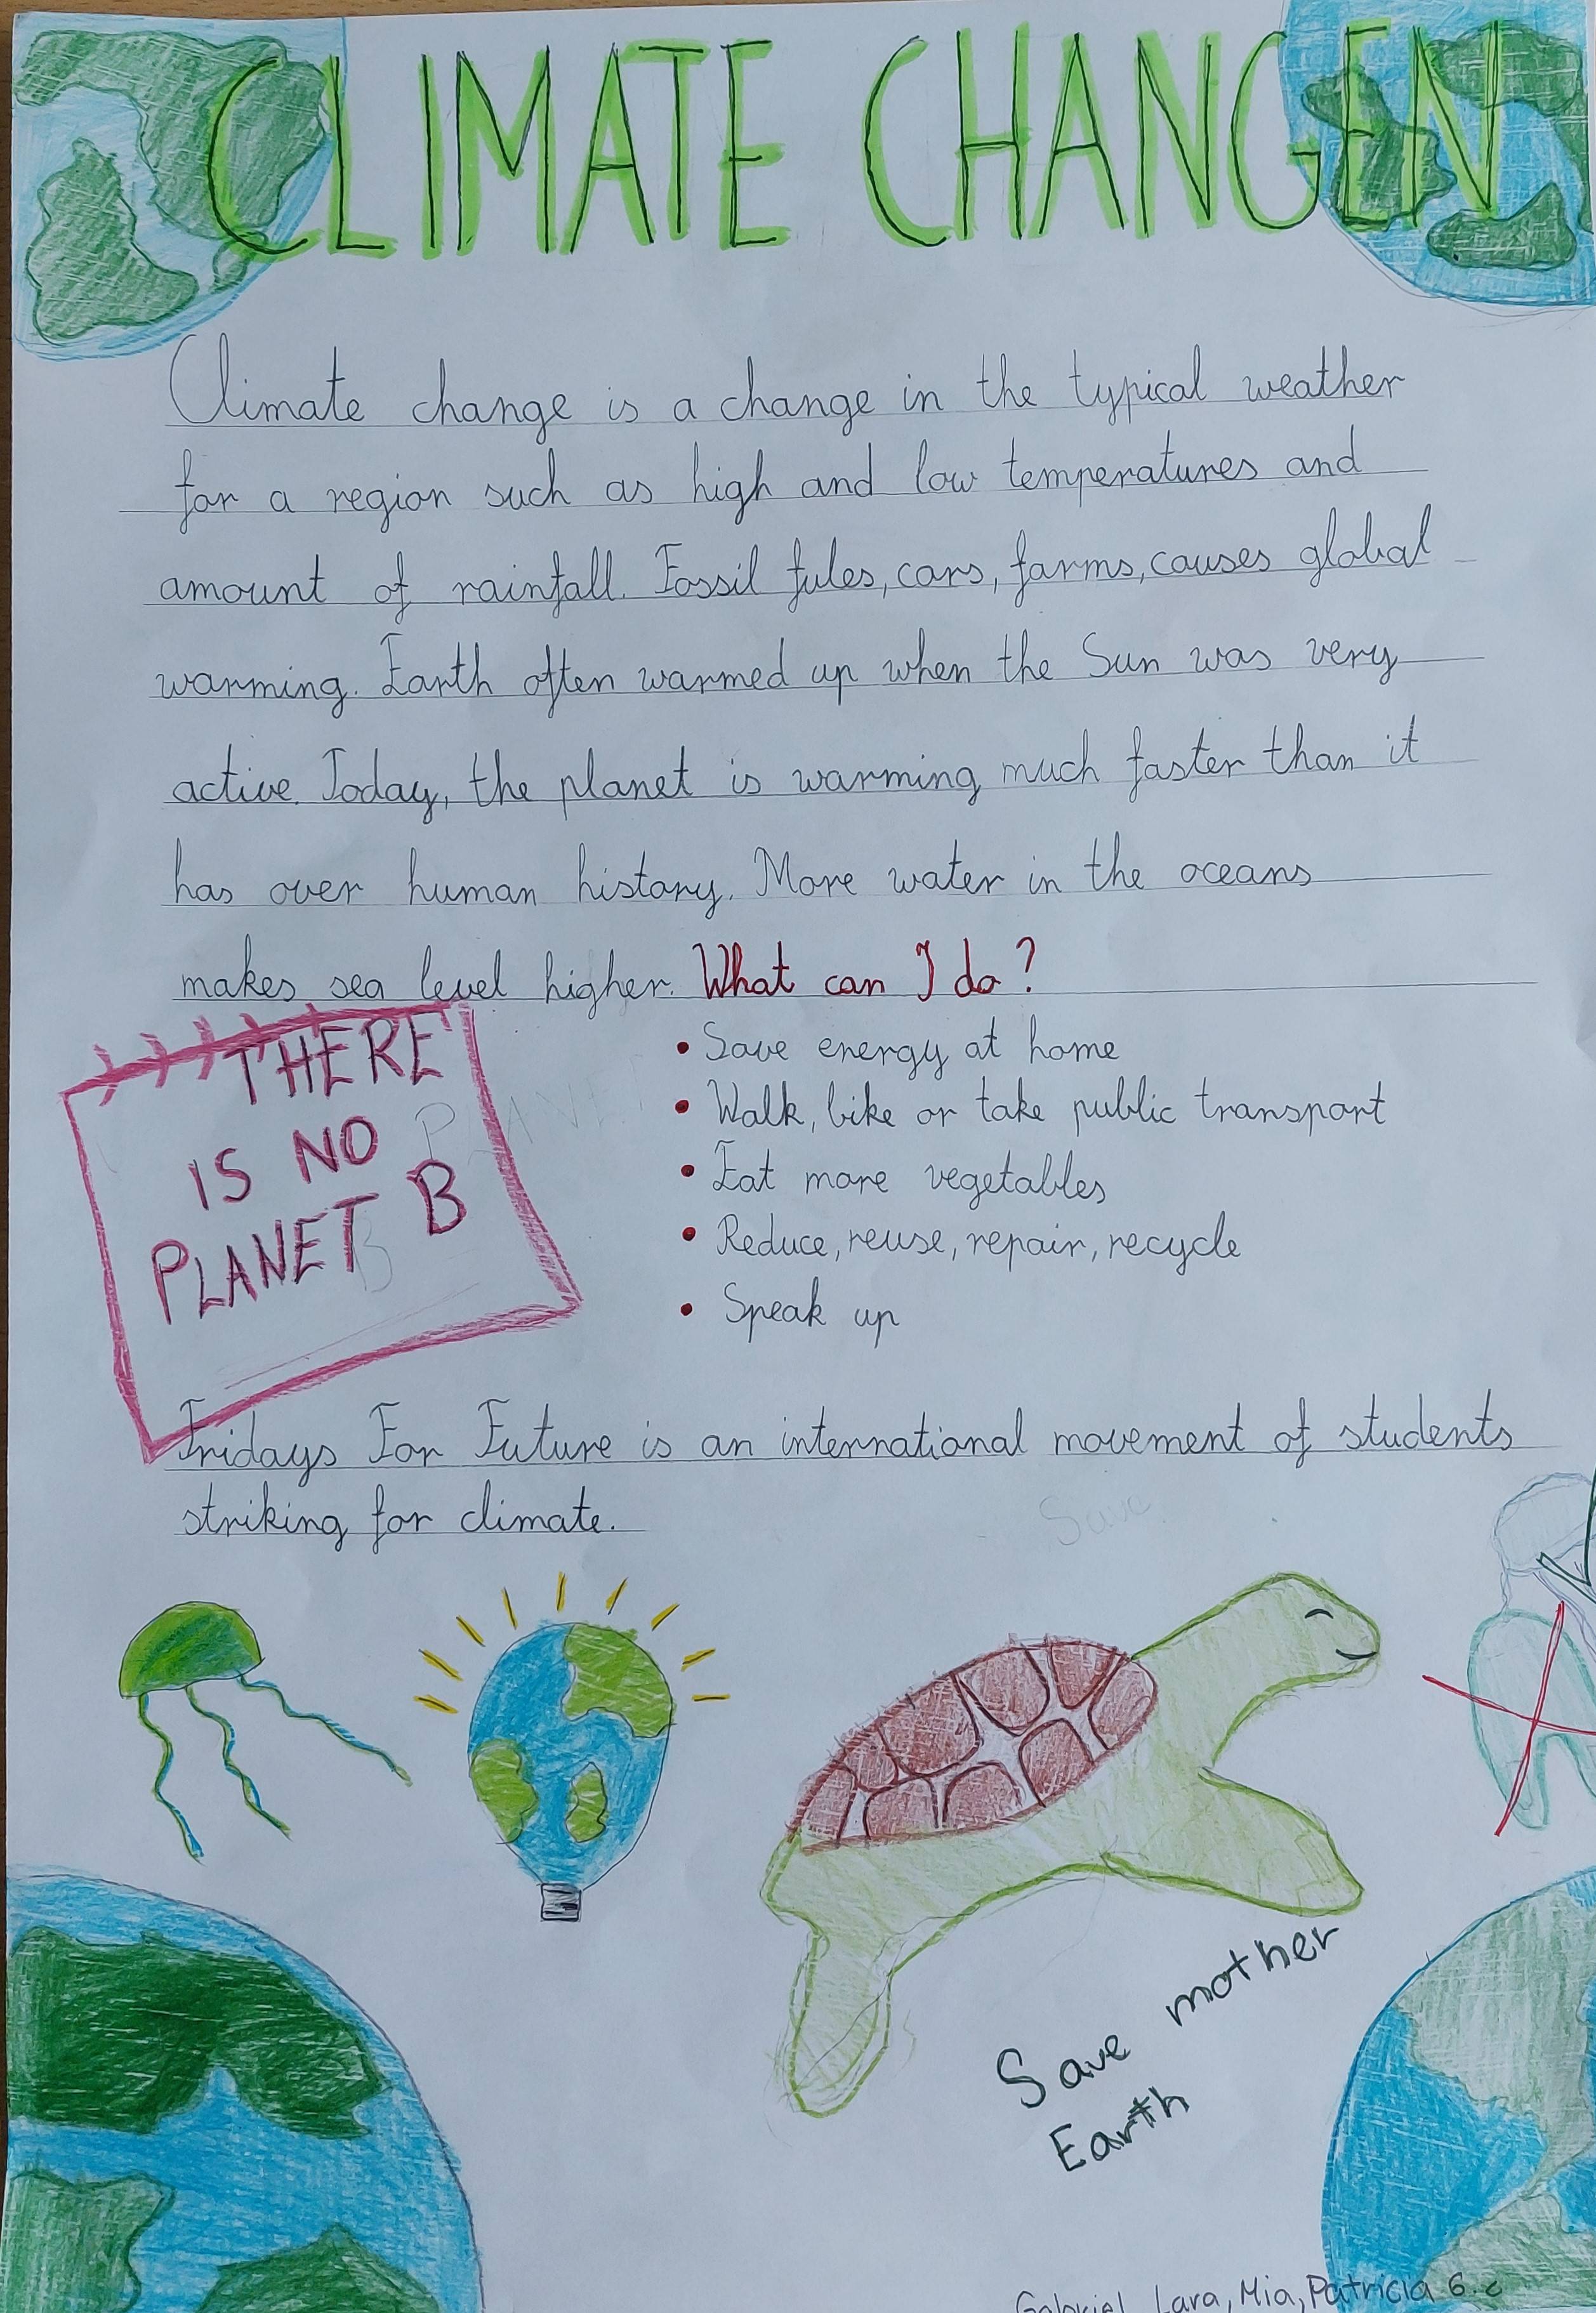 CLIMATE CHANGEN
Climate change is a change in the typical weather
for a region such as high and low temperatures and
amount of rainfall. Fossil fules, cars, farms, causes global
warming. Earth often warmed up when the Sun was very
active. Today, the planet is warming much faster than it
has over human history. More water in the oceans
makes sea level higher. What can I do?
THERE
IS NO
PLANET B
PLANET
B
• Save energy at home
• Walk, bike or take public transport
• Eat more vegetables
• Reduce, reuse, repair, recycle
• Speak up
Fridays For Future is an international movement of students
striking for climate.
Save
Save mother
Earth
Gabriel, Lara, Mia, Patricia 6.c